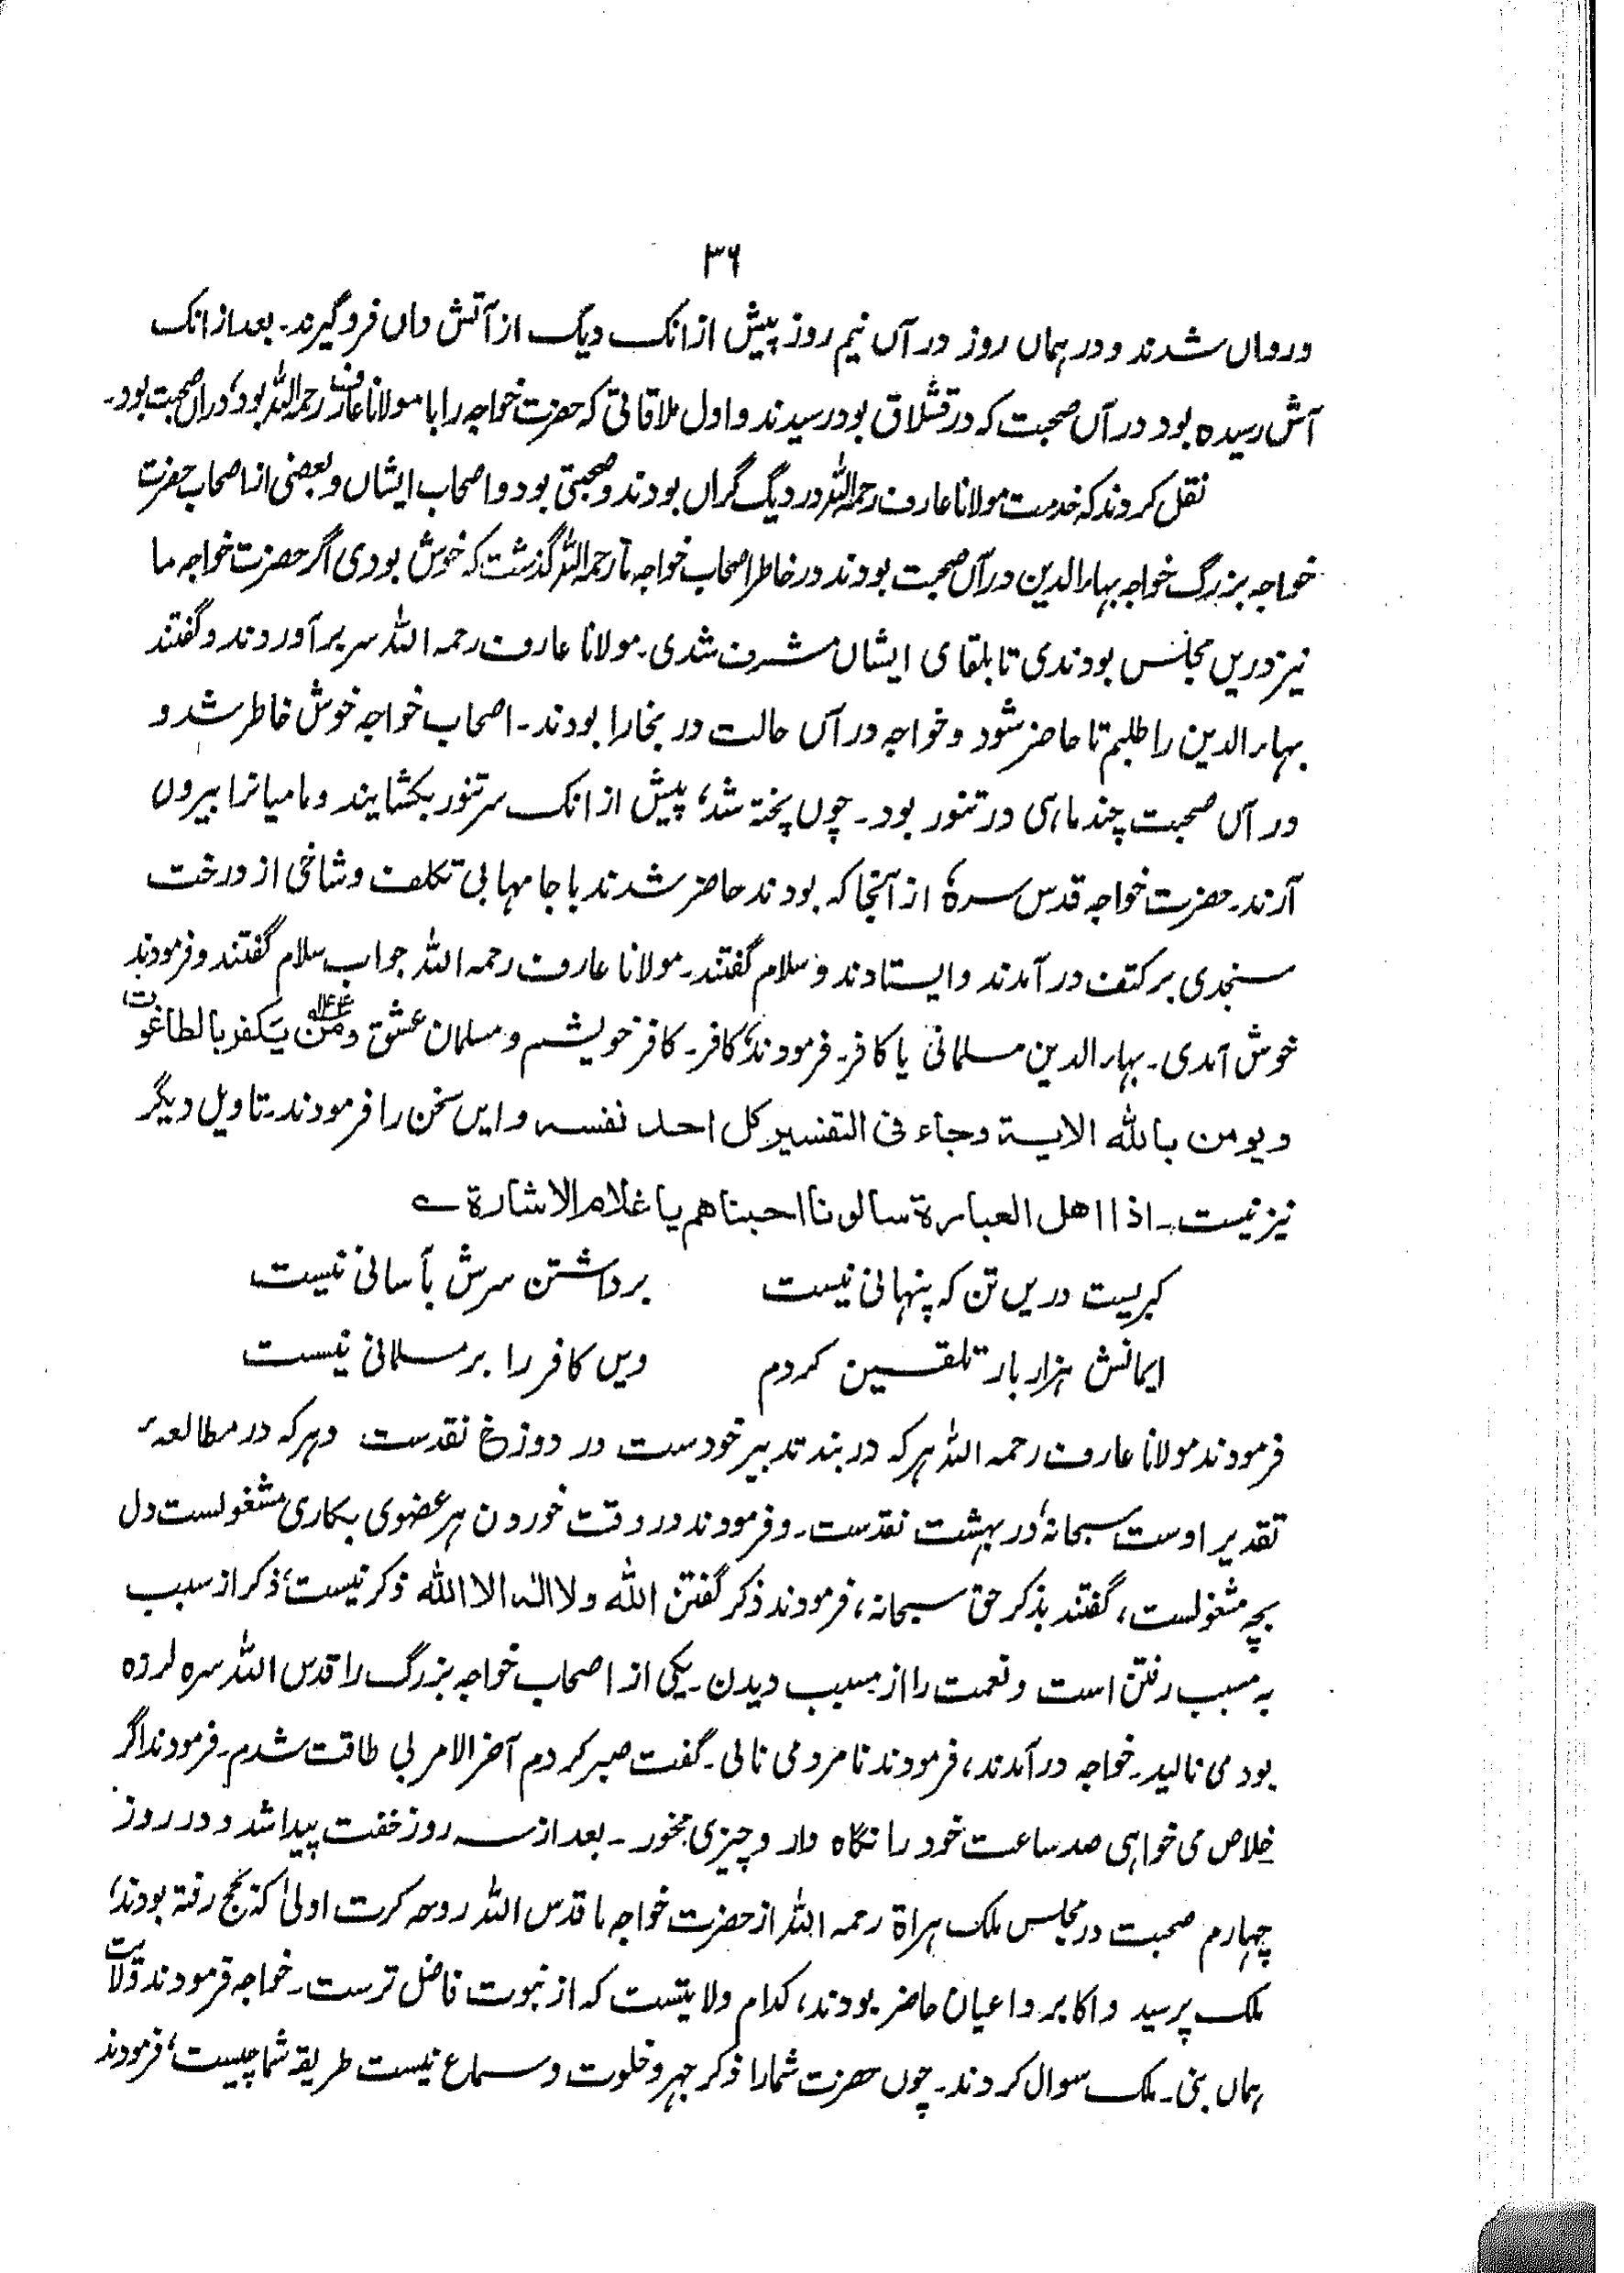 ۳۶
ورواں شدند و در ہماں روز در آں نیم روز پیش ازانک دیگ از آتش داں فرو گیرند۔ بعد ازانک
آش رسیدہ بود در آں صحبت کہ در قشلاق بود رسیدند و اول ملاقاتی کہ حضرت خواجہ را با مولانا عارف رحمہ اللہ بود، دراں صحبت بود۔
نقل کردند کہ خدمت مولانا عارف رحمہ اللہ در دیگ گراں بودند و صحبتی بود و اصحاب ایشاں و بعضی از اصحاب حضرت
خواجہ بزرگ خواجہ بہاء الدین در آں صحبت بودند در خاطر اصحاب خواجہ ما رحمہ اللہ گذشت کہ خوش بودی اگر حضرت خواجہ ما
نیز دریں مجلس بودندی تا بلقای ایشاں مشرف شدی۔ مولانا عارف رحمہ اللہ سر بر آوردند و گفتند
بہاء الدین را طلبم تا حاضر شود و خواجہ در آں حالت در بخارا بودند۔ اصحاب خواجہ خوش خاطر شد و
در آں صحبت چند ماہی در تنور بود۔ چوں پختہ شد، پیش ازانک سر تنور بکشایند و ماہیانرا بیروں
آرند۔ حضرت خواجہ قدس سرہٗ از آنجا کہ بودند حاضر شدند با جامہا بی تکلف و شاخی از درخت
سنجدی بر کتف در آمدند و ایستادند و سلام گفتند۔ مولانا عارف رحمہ اللہ جواب سلام گفتند و فرمودند
خوش آمدی۔ بہاء الدین مسلمانی یا کافر۔ فرمودند، کافر۔ کافر خویشم و مسلمان عشق ومن یکفر بالطاغوت
ویومن باللہ الایۃ وجاء فی التفسیر کل احد نفسہ و ایں سخن را فرمودند۔ تاویل دیگر
نیز نیست۔ اذا اھل العبارۃ سالونا احبناھم یا غلام الاشارۃ ے
کبریست دریں تن کہ پنہانی نیست برداشتن سرش بآسانی نیست
ایمانش ہزار بار تلقین کردم ویں کافر را بر مسلمانی نیست
فرمودند مولانا عارف رحمہ اللہ ہر کہ در بند تدبیر خودست در دوزخ نقدست و ہر کہ در مطالعہٴ
تقدیر اوست سبحانہٗ در بہشت نقدست۔ و فرمودند در وقت خوردن ہر عضوی بکاری مشغولست دل
بچہ مشغولست، گفتند بذکر حق سبحانہ، فرمودند ذکر گفتن اللہ ولا الہ الا اللہ ذکر نیست، ذکر از سبب
بہ مسبب رفتن است و نعمت را از مسبب دیدن۔ یکی از اصحاب خواجہ بزرگ را قدس اللہ سرہ لرزہ
بود می نالید۔ خواجہ در آمدند، فرمودند نامرد می نالی۔ گفت صبر کردم آخر الامر بی طاقت شدم۔ فرمودند اگر
خلاص می خواہی صد ساعت خود را نگاہ دار و چیزی مخور۔ بعد از سہ روز خفت پیدا شد و در روز
چہارم صحبت در مجلس ملک ہراۃ رحمہ اللہ از حضرت خواجہ ما قدس اللہ روحہ کرت اولیٰ کہ بحج رفتہ بودند،
ملک پرسید و اکابر و اعیان حاضر بودند، کدام ولایتست کہ از نبوت فاضل ترست۔ خواجہ فرمودند ولایت
ہماں نبی۔ ملک سوال کردند۔ چوں حضرت شما را ذکر جہر و خلوت و سماع نیست طریقہ شما چیست، فرمودند